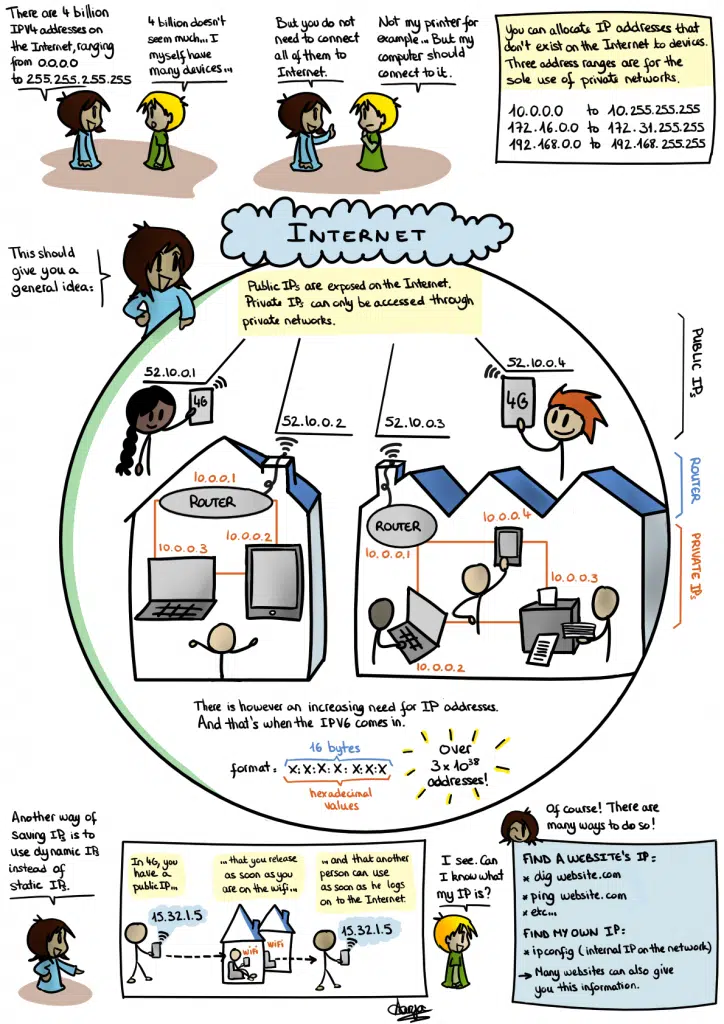 There are 4 billion
IPV4 addresses on
the Internet, ranging
from 0.0.0.0
to 255.255.255.255
4 billion doesn't
seem much... I
myself have
many devices...
But you do not
need to connect
all of them to
Internet.
Not my printer for
example... But my
computer should
connect to it.
You can allocate IP addresses that
don't exist on the Internet to devices.
Three address ranges are for the
sole use of private networks.
10.0.0.0 to 10.255.255.255
172.16.0.0 to 172.31.255.255
192.168.0.0 to 192.168.255.255
INTERNET
This should
give you a
general idea:
Public IPs are exposed on the Internet.
Private IPs can only be accessed through
private networks.
52.10.0.1
4G
52.10.0.2
52.10.0.3
52.10.0.4
4G
PUBLIC IPs
ROUTER
PRIVATE IPs
10.0.0.1
ROUTER
10.0.0.2
10.0.0.3
ROUTER
10.0.0.1
10.0.0.4
10.0.0.3
10.0.0.2
There is however an increasing need for IP addresses.
And that's when the IPV6 comes in.
16 bytes
format: X:X:X:X:X:X:X
hexadecimal
values
Over
3 x 10³⁸
addresses!
Another way of
saving IPs is to
use dynamic IPs
instead of
static IPs.
In 4G, you
have a
public IP...
15.32.1.5
...that you release
as soon as you
are on the wifi...
WiFi
WiFi
...and that another
person can use
as soon as he logs
on to the Internet.
15.32.1.5
I see. Can
I know what
my IP is?
Of course! There are
many ways to do so!
FIND A WEBSITE'S IP:
* dig website.com
* ping website.com
* etc...
FIND MY OWN IP:
* ipconfig (internal IP on the network)
→ Many websites can also give
you this information.